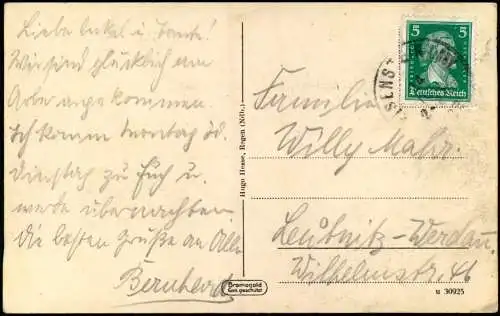 Liebe Onkel u. Tante!
Wir sind glücklich am
Orte angekommen.
Ich komme Montag od.
Dienstag zu Euch u.
werde übernachten.
Die besten Grüße an Alle
Bernhard
Hugo Hesse, Hagen (Ndb.)
Bromogold
Ges. geschützt
5 5
Deutsches Reich
Familie
Willy Mahr.
Leubnitz-Werdau.
Wilhelmstr. 46
u 30925